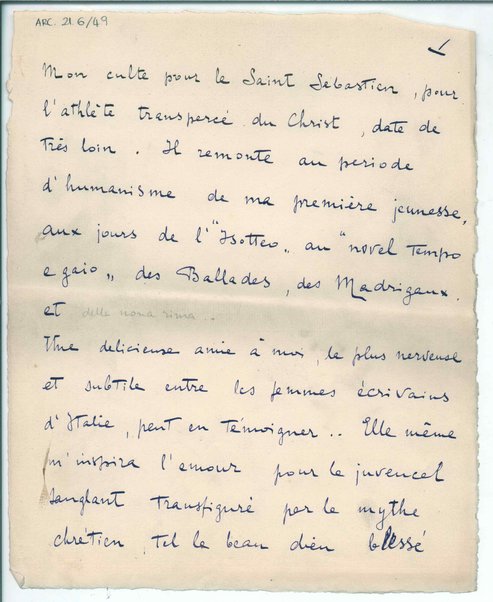 ARC. 21.6/49
Mon culte pour le Saint Sébastien, pour
l'athlète transpercé du Christ, date de
très loin. Il remonte au periode
d'humanisme de ma première jeunesse,
aux jours de l'"Isotteo„ au "novel tempo
e gaio„ des Ballades, des Madrigaux.
et della nona rima..
Une delicieuse amie à moi, la plus nerveuse
et subtile entre les femmes écrivains
d'Italie, peut en témoigner.. Elle même
m'inspira l'amour pour le juvencel
sanglant transfiguré par le mythe
chrétien, tel le beau dieu blessé